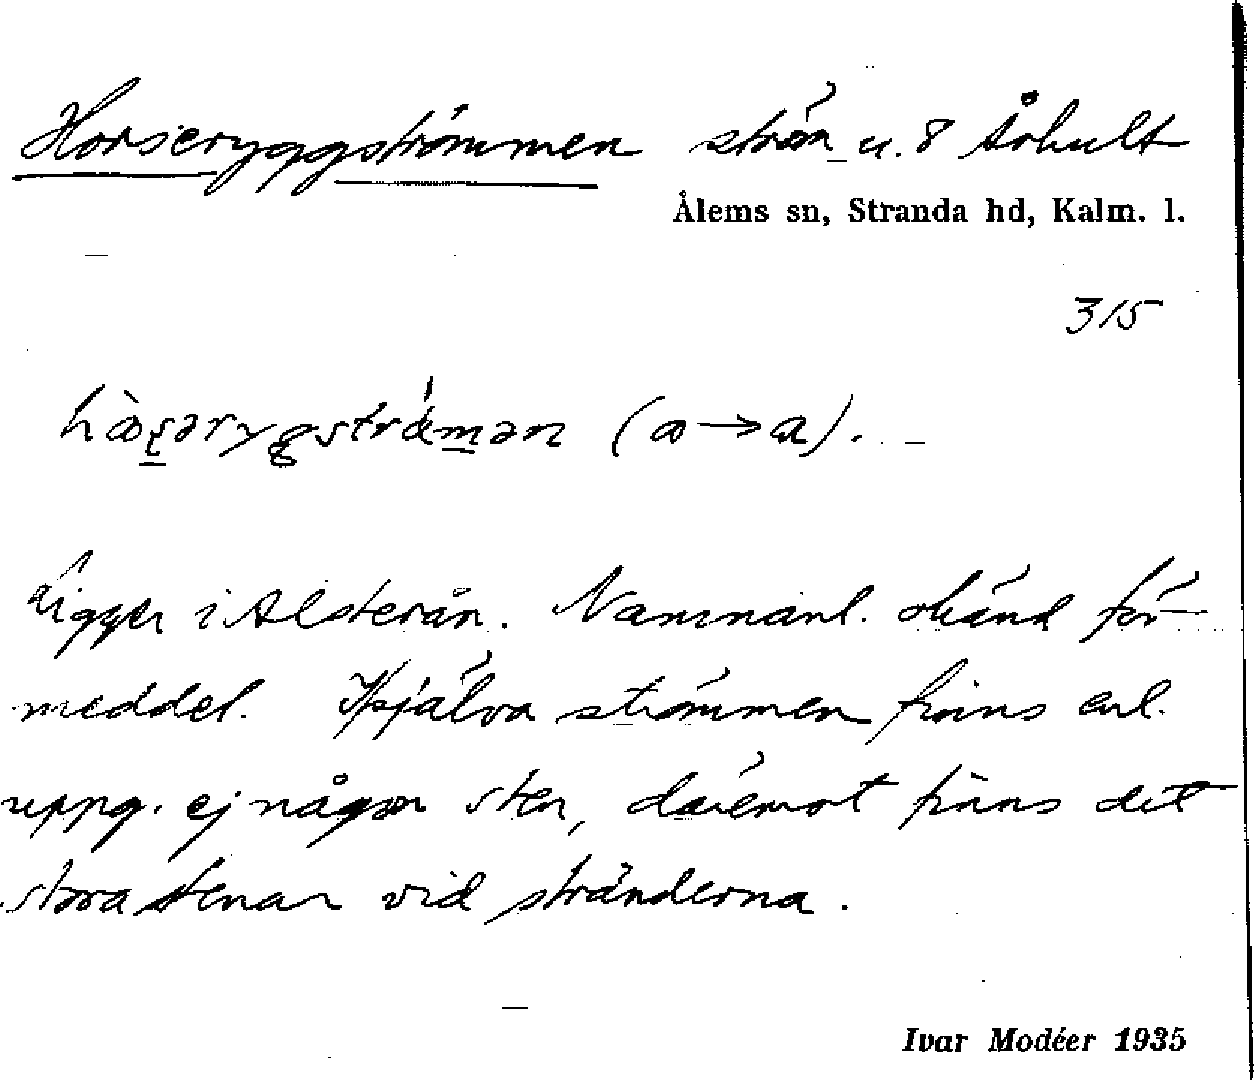 Horseryggströmmen ström u. 8 Århult
Ålems sn, Stranda hd, Kalm. l.
315
(ɷ→a).
Ligger i Alsterån. Namnanl. okänd för
meddel. I själva strömmen finns enl.
uppg. ej någon sten, däremot finns det
stora stenar vid stränderna.
Ivar Modéer 1935